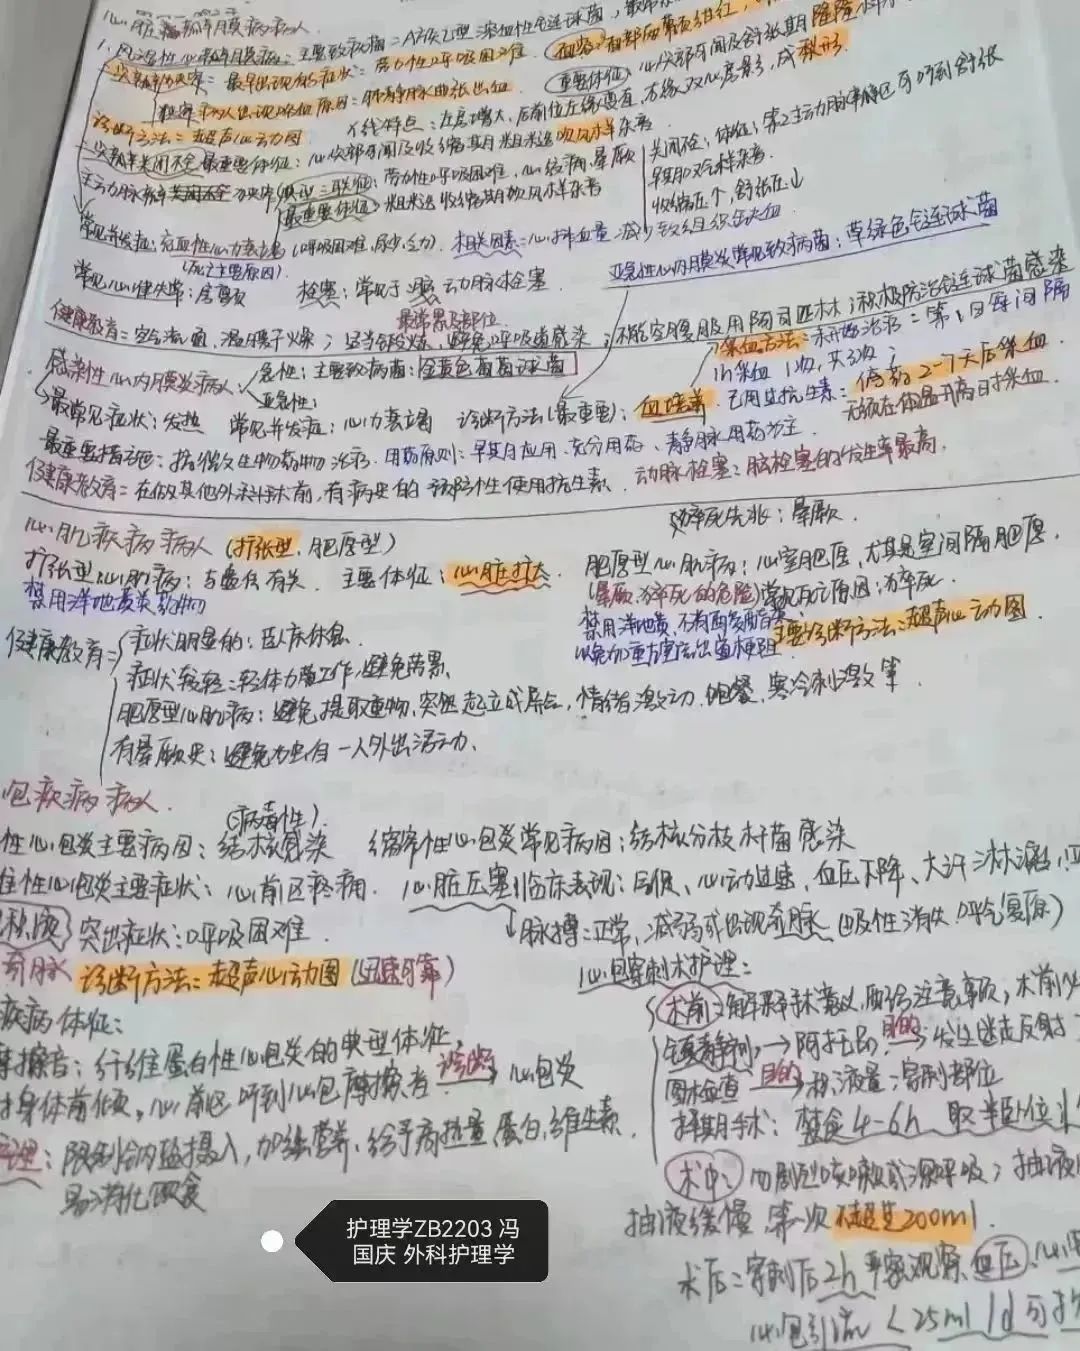 心脏瓣膜病病人
1.风湿性心脏瓣膜病：主要致病菌=A族乙型溶血性链球菌，
二尖瓣狭窄=最早出现的症状：劳力性呼吸困难
重要体征：心尖部可闻及舒张期隆隆
X线特点：左房增大，后前位左缘变直，右缘双心房影，成梨形
诊断方法=超声心动图
二尖瓣关闭不全 最重要体征：心尖部可闻及收缩期粗糙吹风样杂音
关闭不全：体征：第2主动脉瓣听诊区可听到舒张
早期叹气样杂音
主动脉瓣
典型三联征：劳力性呼吸困难，心绞痛，晕厥
最重要体征 粗糙收缩期吹风样杂音
收缩压个，舒张压↓
常见并发症：充血性心力衰竭（呼吸困难，尿少，乏力）．相关因素=心排血量减少致组织缺血
（死亡主要原因）
亚急性心内膜炎常见致病菌：草绿色链球菌
常见心律失常：房颤 栓塞：常见于脑动脉栓塞
最常累及部位
健康教育=空气流通，温暖干燥；适当锻炼，避免呼吸道感染；不能空腹服用阿司匹林；积极防治链球菌感染
感染性心内膜炎病人：急性：主要致病菌：金黄色葡萄球菌
亚急性：
采血方法：未开始治疗=第1日每间隔
1h采血1次，共3次；
最常见症状：发热 常见并发症：心力衰竭 诊断方法（最重要）：血培养．已用过抗生素=停药2-7天后采血
无须在体温升高时采血
最重要措施：抗微生物药物治疗．用药原则：早期应用、充分用药、静脉用药为主
健康教育=在做其他外科手术前，有病史的预防性使用抗生素．动脉栓塞：脑栓塞的发生率最高．
猝死先兆：晕厥．
心肌疾病病人（扩张型．肥厚型）
扩张型心肌病：与遗传有关．主要体征：心脏扩大
禁用洋地黄类药物
肥厚型心肌病：心室肥厚，尤其是室间隔肥厚．
（晕厥、猝死的危险）常见死亡原因：猝死．
禁用洋地黄，
以免加重左室流出道梗阻 主要诊断方法=超声心动图
健康教育= 症状明显的：卧床休息．
症状较轻=轻体力工作，避免劳累．
肥厚型心肌病：避免提取重物，突然起立或屏气，情绪激动，饱餐，寒冷刺激等．
有晕厥史：避免独自一人外出活动．
包疾病病人．
（病毒性）
性心包炎主要病因：结核感染 缩窄性心包炎常见病因：结核分枝杆菌感染
性心包炎主要症状：心前区疼痛．心脏压塞临床表现：心动过速、血压下降、大汗淋漓，
积液）突出症状：呼吸困难．
脉搏：正常、减弱或出现奇脉（吸性消失 呼气复原）
奇脉 诊断方法=超声心动图（迅速可靠）
心包穿刺术护理：
疾病体征：
摩擦音：纤维蛋白性心包炎的典型体征，
身体前倾，心前区听到心包摩擦音 诊断→心包炎
限制钠盐摄入，加强营养，给予高热量，蛋白，维生素．
易消化饮食
术前：解释手术意义，注意事项，术前
镇静剂，→阿托品，目的：发生迷走反射
目的→积液量；穿刺部位
择期手术：禁食4-6h 取半卧位
术中：勿剧烈咳嗽或深呼吸；抽液
抽液缓慢，第一次不超过200ml．
术后：穿刺后2h 严密观察血压、
心包引流<25ml/d可
护理学ZB2203 冯
国庆 外科护理学